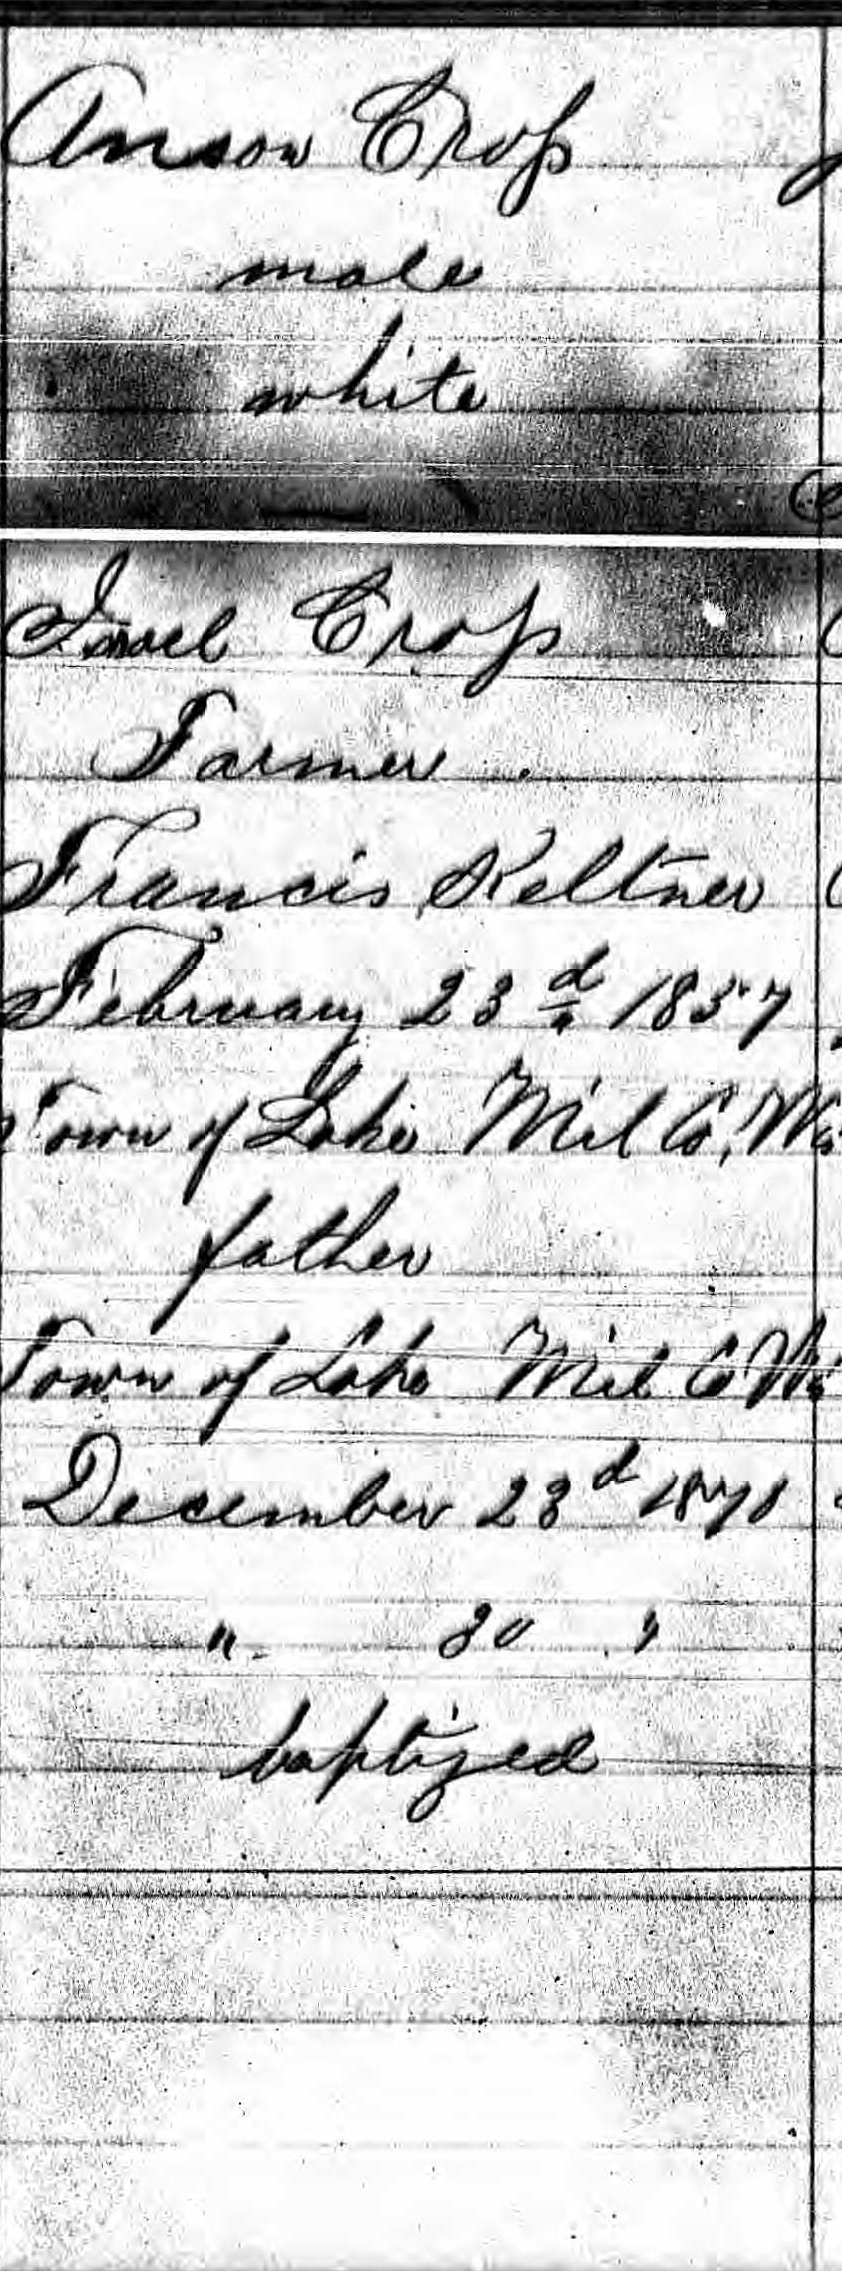 Anson Cross
male
white
—
Israel Cross
Farmer
Francis Keltner
February 23d 1857
Town of Lake Mil Co, Wis
father
Town of Lake Mil Co Wis
December 23d 1870
" 30 "
baptized